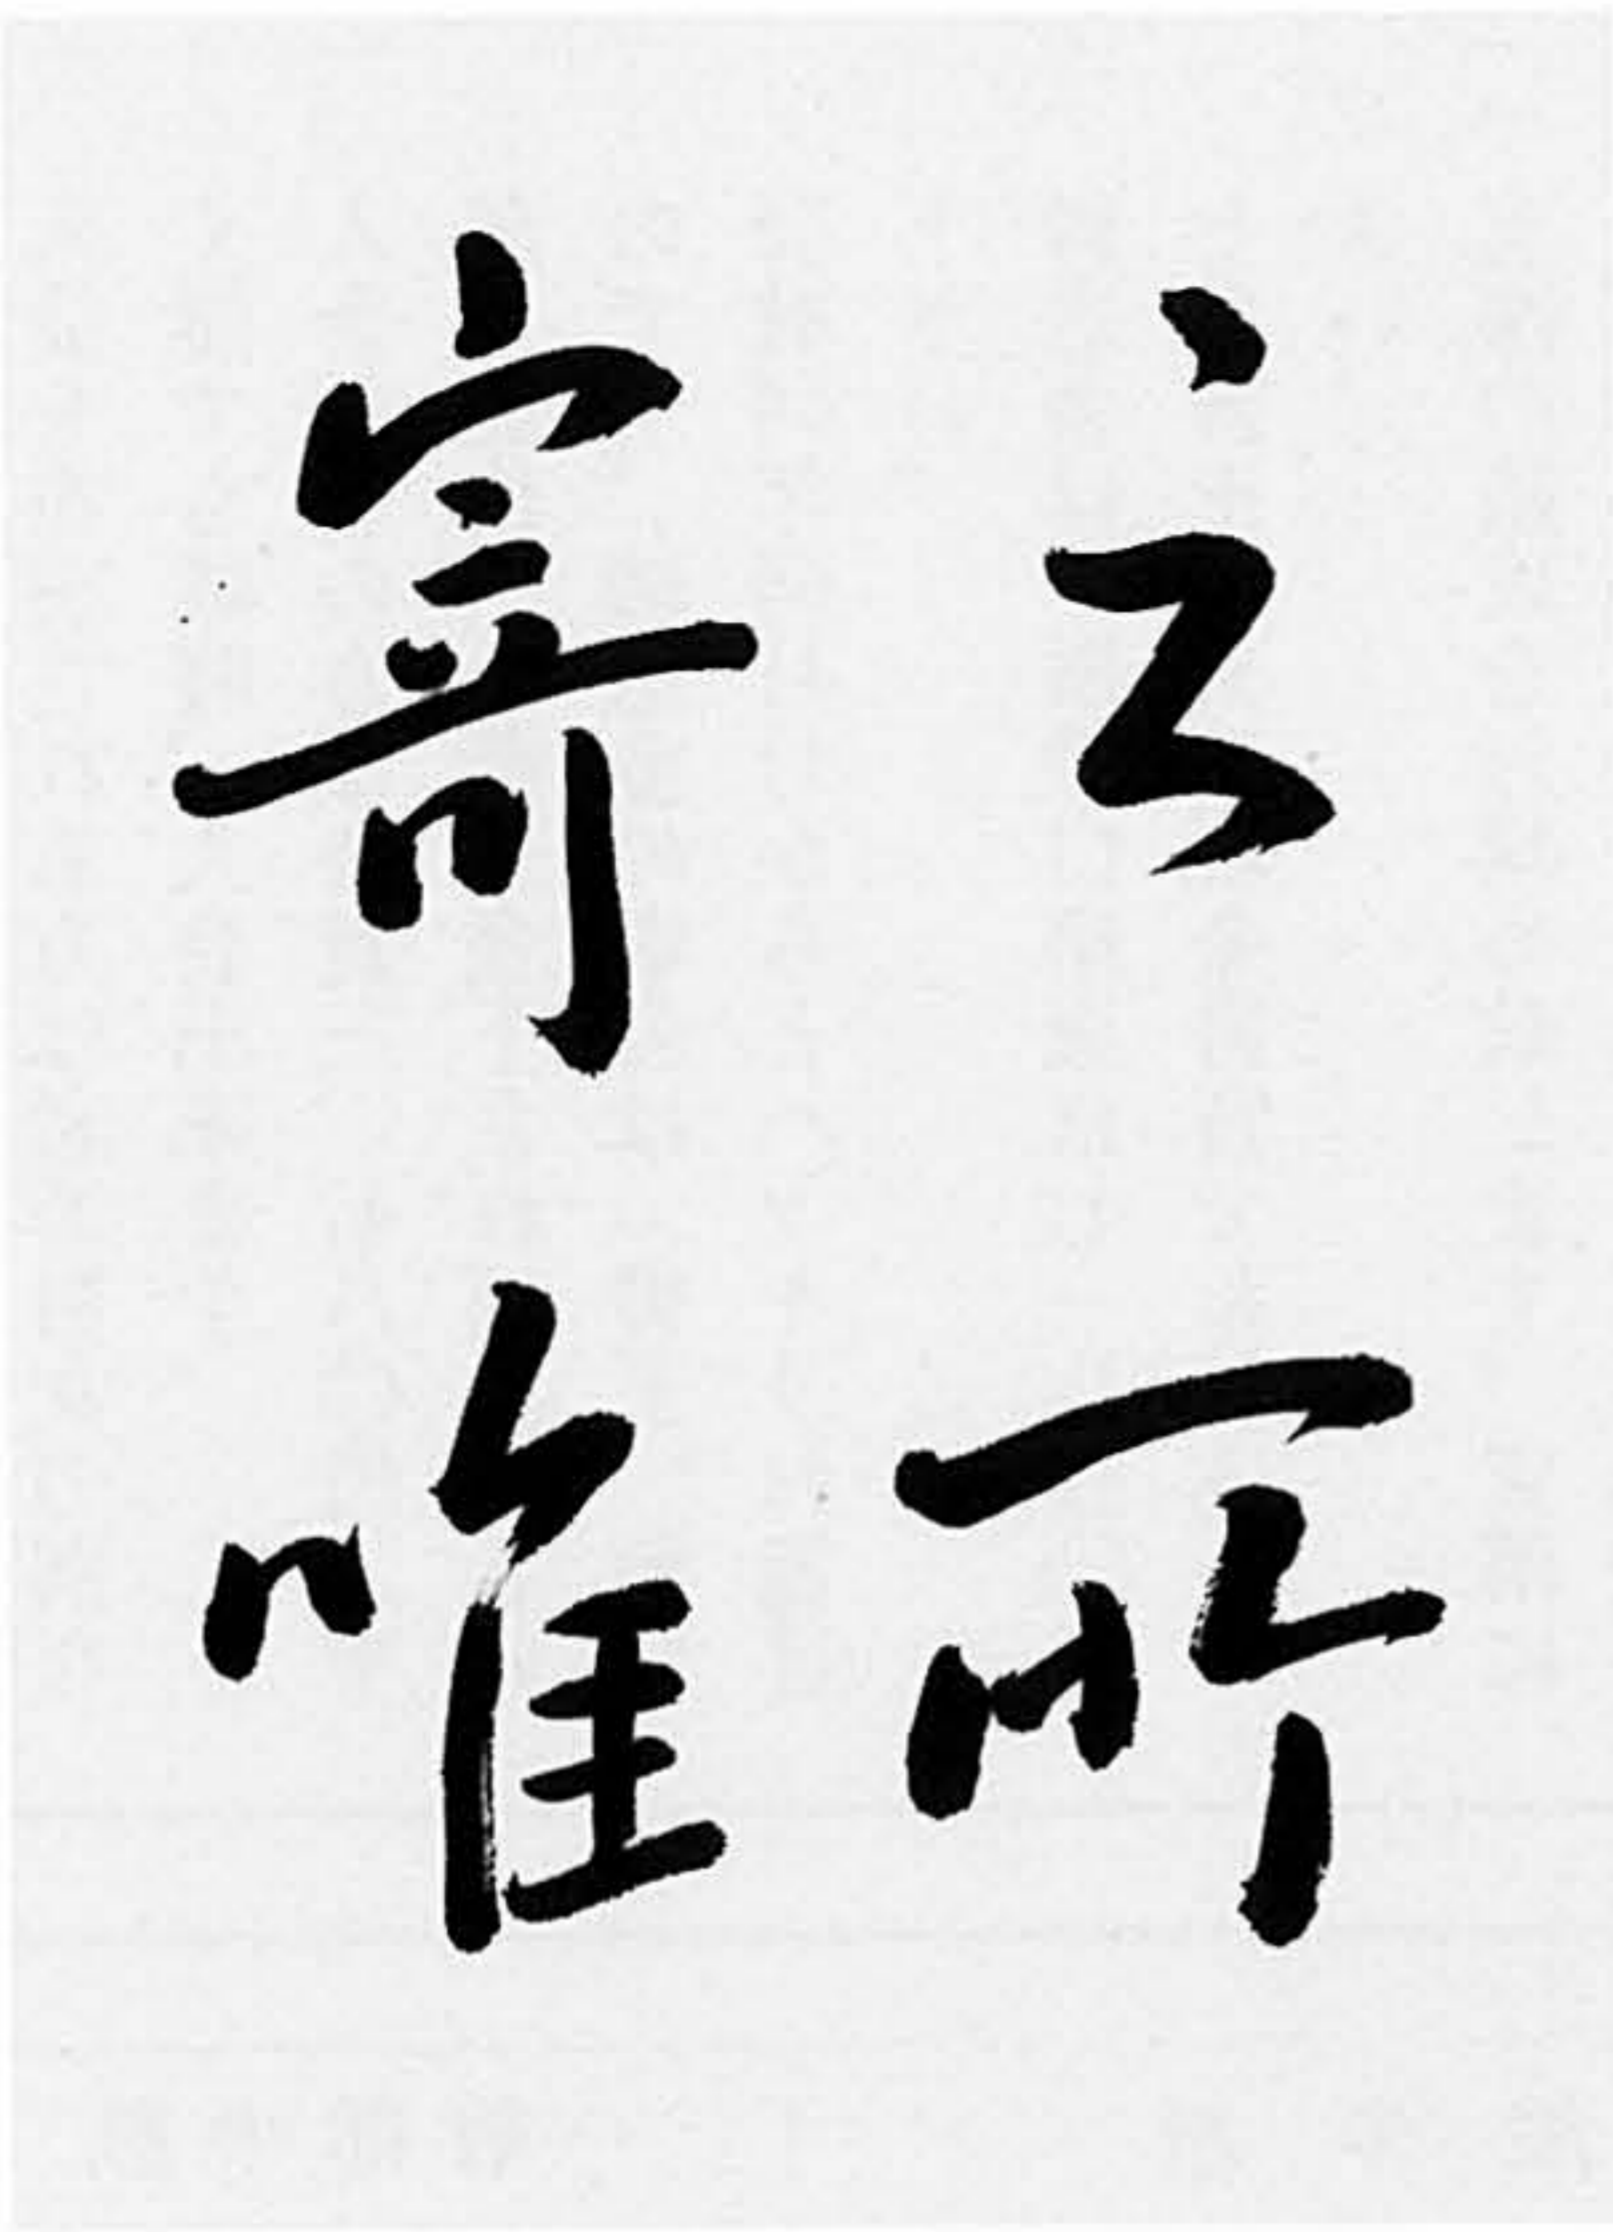 之所
寄唯